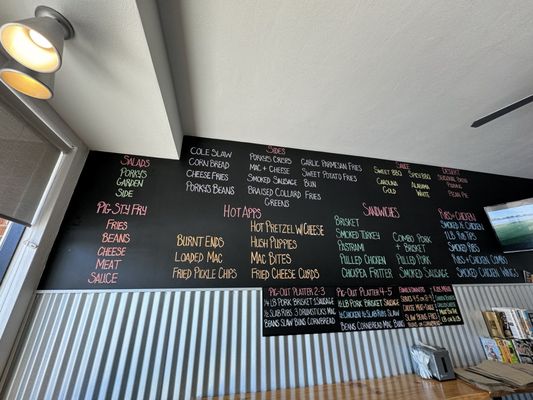 SALADS
PORKY'S
GARDEN
SIDE
COLE SLAW
CORN BREAD
CHEESE FRIES
PORKY'S BEANS
SIDES
PORKY'S CRISPS
MAC + CHEESE
SMOKED SAUSAGE
BRAISED COLLARD
GREENS
GARLIC PARMESAN FRIES
SWEET POTATO FRIES
BUN
SAUCE
SWEET BBQ
CAROLINA
GOLD
SPICY BBQ
ALABAMA
WHITE
DESSERT
PIG STY FRY
FRIES
BEANS
CHEESE
MEAT
SAUCE
HOT APPS
BURNT ENDS
LOADED MAC
FRIED PICKLE CHIPS
HOT PRETZEL W/CHEESE
HUSH PUPPIES
MAC BITES
FRIED CHEESE CURDS
SANDWICHES
BRISKET
SMOKED TURKEY
PASTRAMI
PULLED CHICKEN
CHOPPER FRITTER
COMBO PORK
+ BRISKET
PULLED PORK
SMOKED SAUSAGE
RIBS + CHICKEN
SMOKED 1/4 CHICKEN
SMOKED RIBS
SMOKED CHICKEN WINGS
PIG-OUT PLATTER 2-3
1 LB PORK BRISKET 1 SAUSAGE
1/2 SLAB RIBS 3 DRUMSTICKS MAC
BEANS SLAW BUNS CORNBREAD
PIG-OUT PLATTER 4-5
1 1/2 LB PORK BRISKET SAUSAGE
1/2 CHICKEN 1/2 SLAB RIBS SLAW
BEANS CORNBREAD MAC BUNS
SERVES 4-5
CHOOSE MEAT + SAUCE
SLAW BEANS FRIES
KIDS MEALS